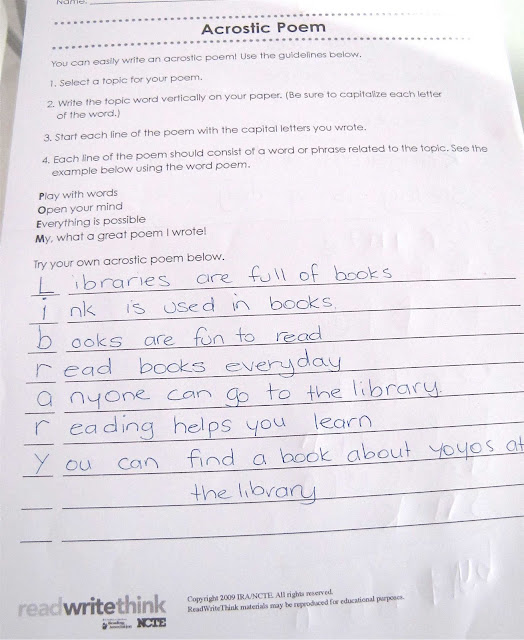 Name:
Acrostic Poem
You can easily write an acrostic poem! Use the guidelines below.
1. Select a topic for your poem.
2. Write the topic word vertically on your paper. (Be sure to capitalize each letter
of the word.)
3. Start each line of the poem with the capital letters you wrote.
4. Each line of the poem should consist of a word or phrase related to the topic. See the
example below using the word poem.
Play with words
Open your mind
Everything is possible
My, what a great poem I wrote!
Try your own acrostic poem below.
Libraries are full of books
ink is used in books.
books are fun to read
read books everyday
anyone can go to the library.
reading helps you learn
You can find a book about yoyos at
the library
readwritethink
Copyright 2009 IRA/NCTE. All rights reserved.
ReadWriteThink materials may be reproduced for educational purposes.
NCTE